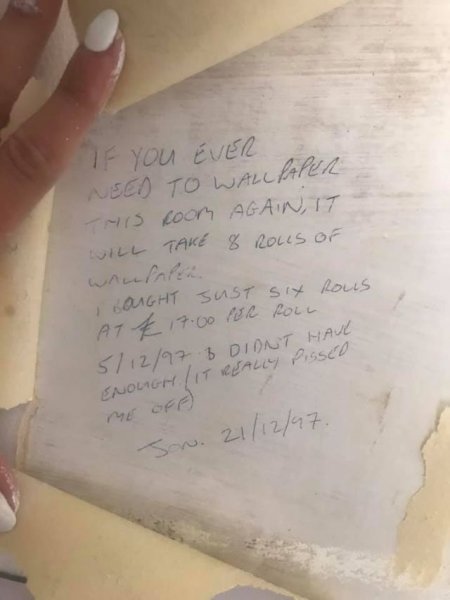 IF YOU EVER
NEED TO WALLPAPER
THIS ROOM AGAIN, IT
WILL TAKE 8 ROLLS OF
WALLPAPER.
I BOUGHT JUST SIX ROLLS
AT £17.00 PER ROLL
5/12/97 & DIDNT HAVE
ENOUGH (IT REALLY PISSED
ME OFF)
JON. 21/12/97.